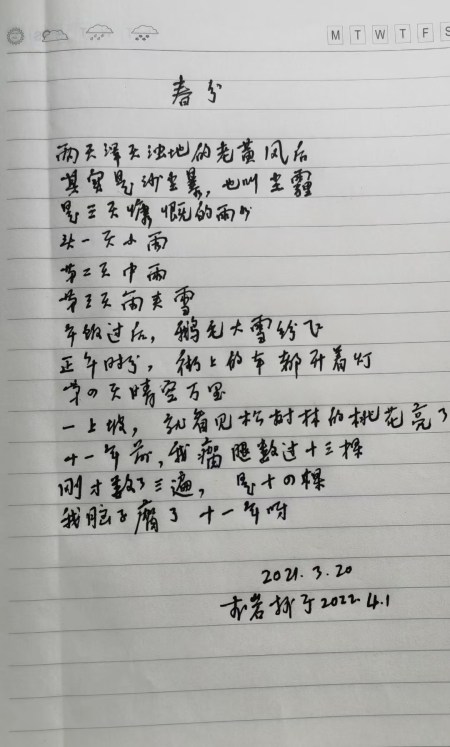 M T W T F S
春分
两天浑天浊地的老黄风后
其实是沙尘暴，也叫尘霾
是三天慷慨的雨水
头一天小雨
第二天中雨
第三天雨夹雪
午饭过后，鹅毛大雪纷飞
正午时分，街上的车都开着灯
第四天晴空万里
一上坡，就看见松树林的桃花亮了
十一年前，我瘤腿数过十三棵
刚才数了三遍，是十四棵
我脑子瘸了十一年呀
2021.3.20
岩 抄于2022.4.1